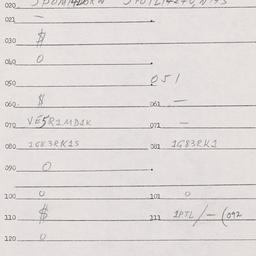 020
021 —
030 $
040 0
050 051
060 $ 061 —
070 VE5R1MD1K 071 —
080 1G83RK1S 081 1G83RK1
090 0
100 0 101 0
110 $ 111 1PTL/—(092
120 0